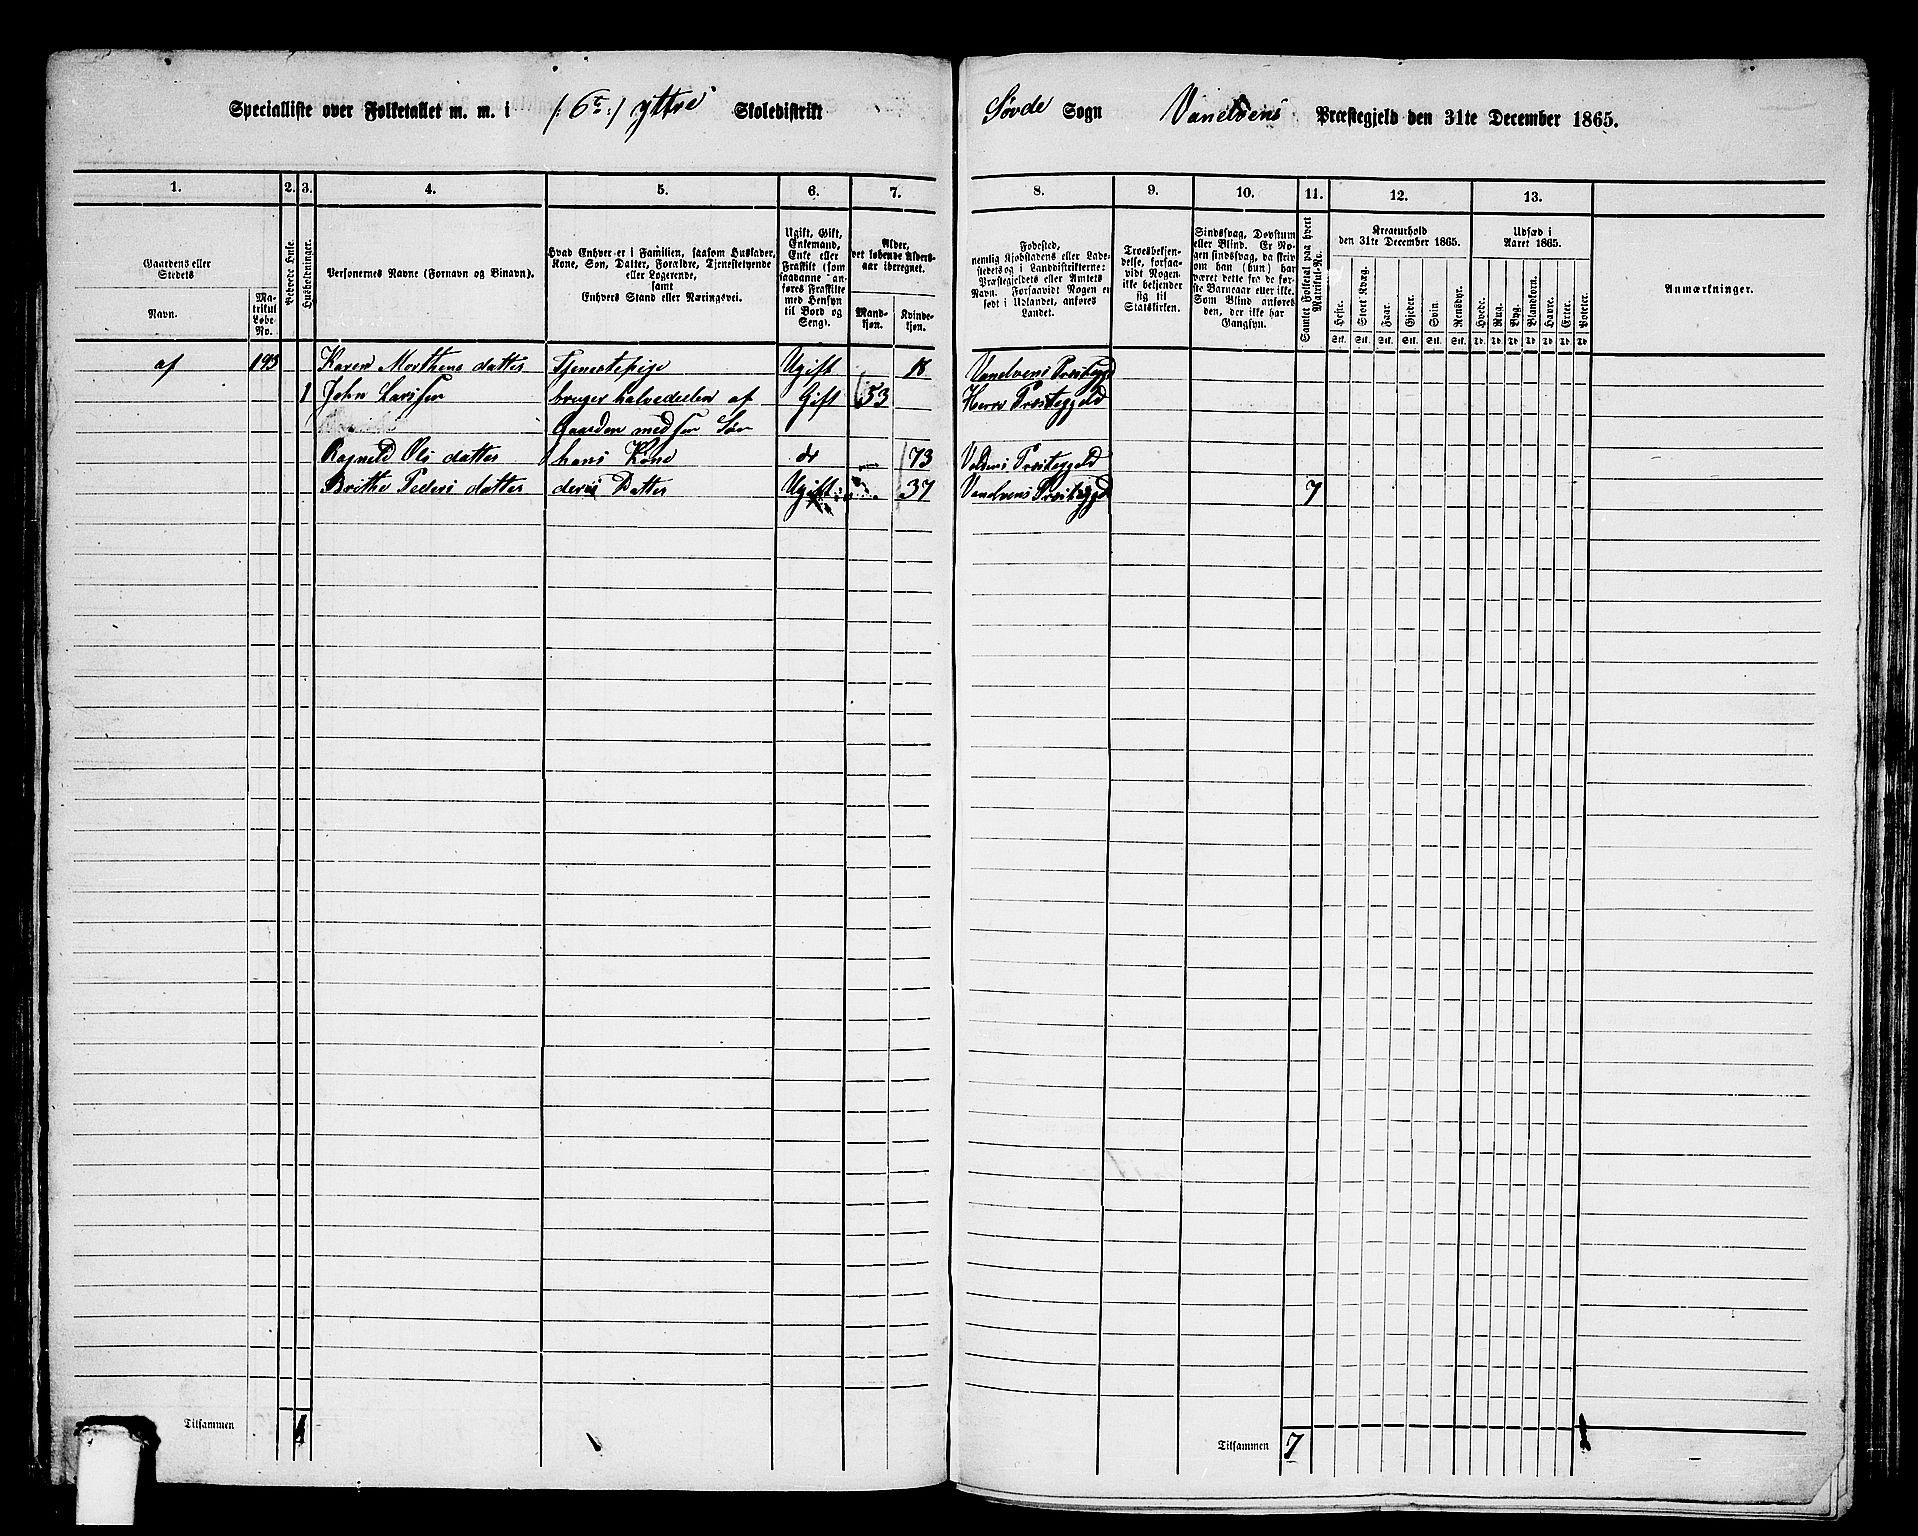 Specialliste over Folketallet m. m. i /: 6te :/ yttre Skoledistrikt Søvde Sogn Vanelvens Præstegjeld den 31te December 1865.
1. 2. 3. 4. 5. 6. 7. 8. 9. 10. 11. 12. 13.
Gaardens eller Stedets
Navn.
Matrikul Løbe-No.
Beboede Huse.
Husholdninger.
Personernes Navne (Fornavn og Binavn).
Hvad Enhver er i Familien, saasom Husfader, Kone, Søn, Datter, Forældre, Tjenestetyende eller Logerende, samt Enhvers Stand eller Næringsvei.
Ugift, Gift, Enkemand, Enke eller Fraskilt (som saadanne anføres Fraskilte med Hensyn til Bord og Seng).
Alder, det løbende Aldersaar iberegnet.
Mandkjøn.
Kvindekjøn.
Fødested, nemlig Kjøbstadens eller Ladestedets og i Landdistrikterne: Præstegjeldets eller Amtets Navn. Forsaavidt Nogen er født i Udlandet, anføres Landet.
Troesbekjendelse, forsaavidt Nogen ikke bekjender sig til Statskirken.
Sindssvag, Døvstum eller Blind. Er Nogen sindssvag, da skrives om han (hun) har været dette fra de første Barneaar eller ikke. Som Blind anføres den, der ikke har Gangsyn.
Samlet Folketal paa hvert Matrikul-No.
Kreaturhold den 31te December 1865.
Heste. Stort Kvæg. Faar. Gjeter. Svin. Rensdyr.
Stk. Stk. Stk. Stk. Stk. Stk.
Udsæd i Aaret 1865.
Hvede. Rug. Byg. Blandkorn. Havre. Erter. Poteter.
Td. Td. Td. Td. Td. Td. Td.
Anmærkninger.
af 193 Karen Morthens datter Tjenestepige Ugift 18 Vanelvens Prestegjeld
1 John Larssen bruger halvedeelen af Gift 53 Herø Prestegjeld
Gaarden med sen Søn
Ragnild Ols datter hans Kone do 73 Voldens Prestegjeld
Brithe Peders datter deres Datter Ugift 37 Vanelvens Prestegjeld 7
Tilsammen 1
Tilsammen 7